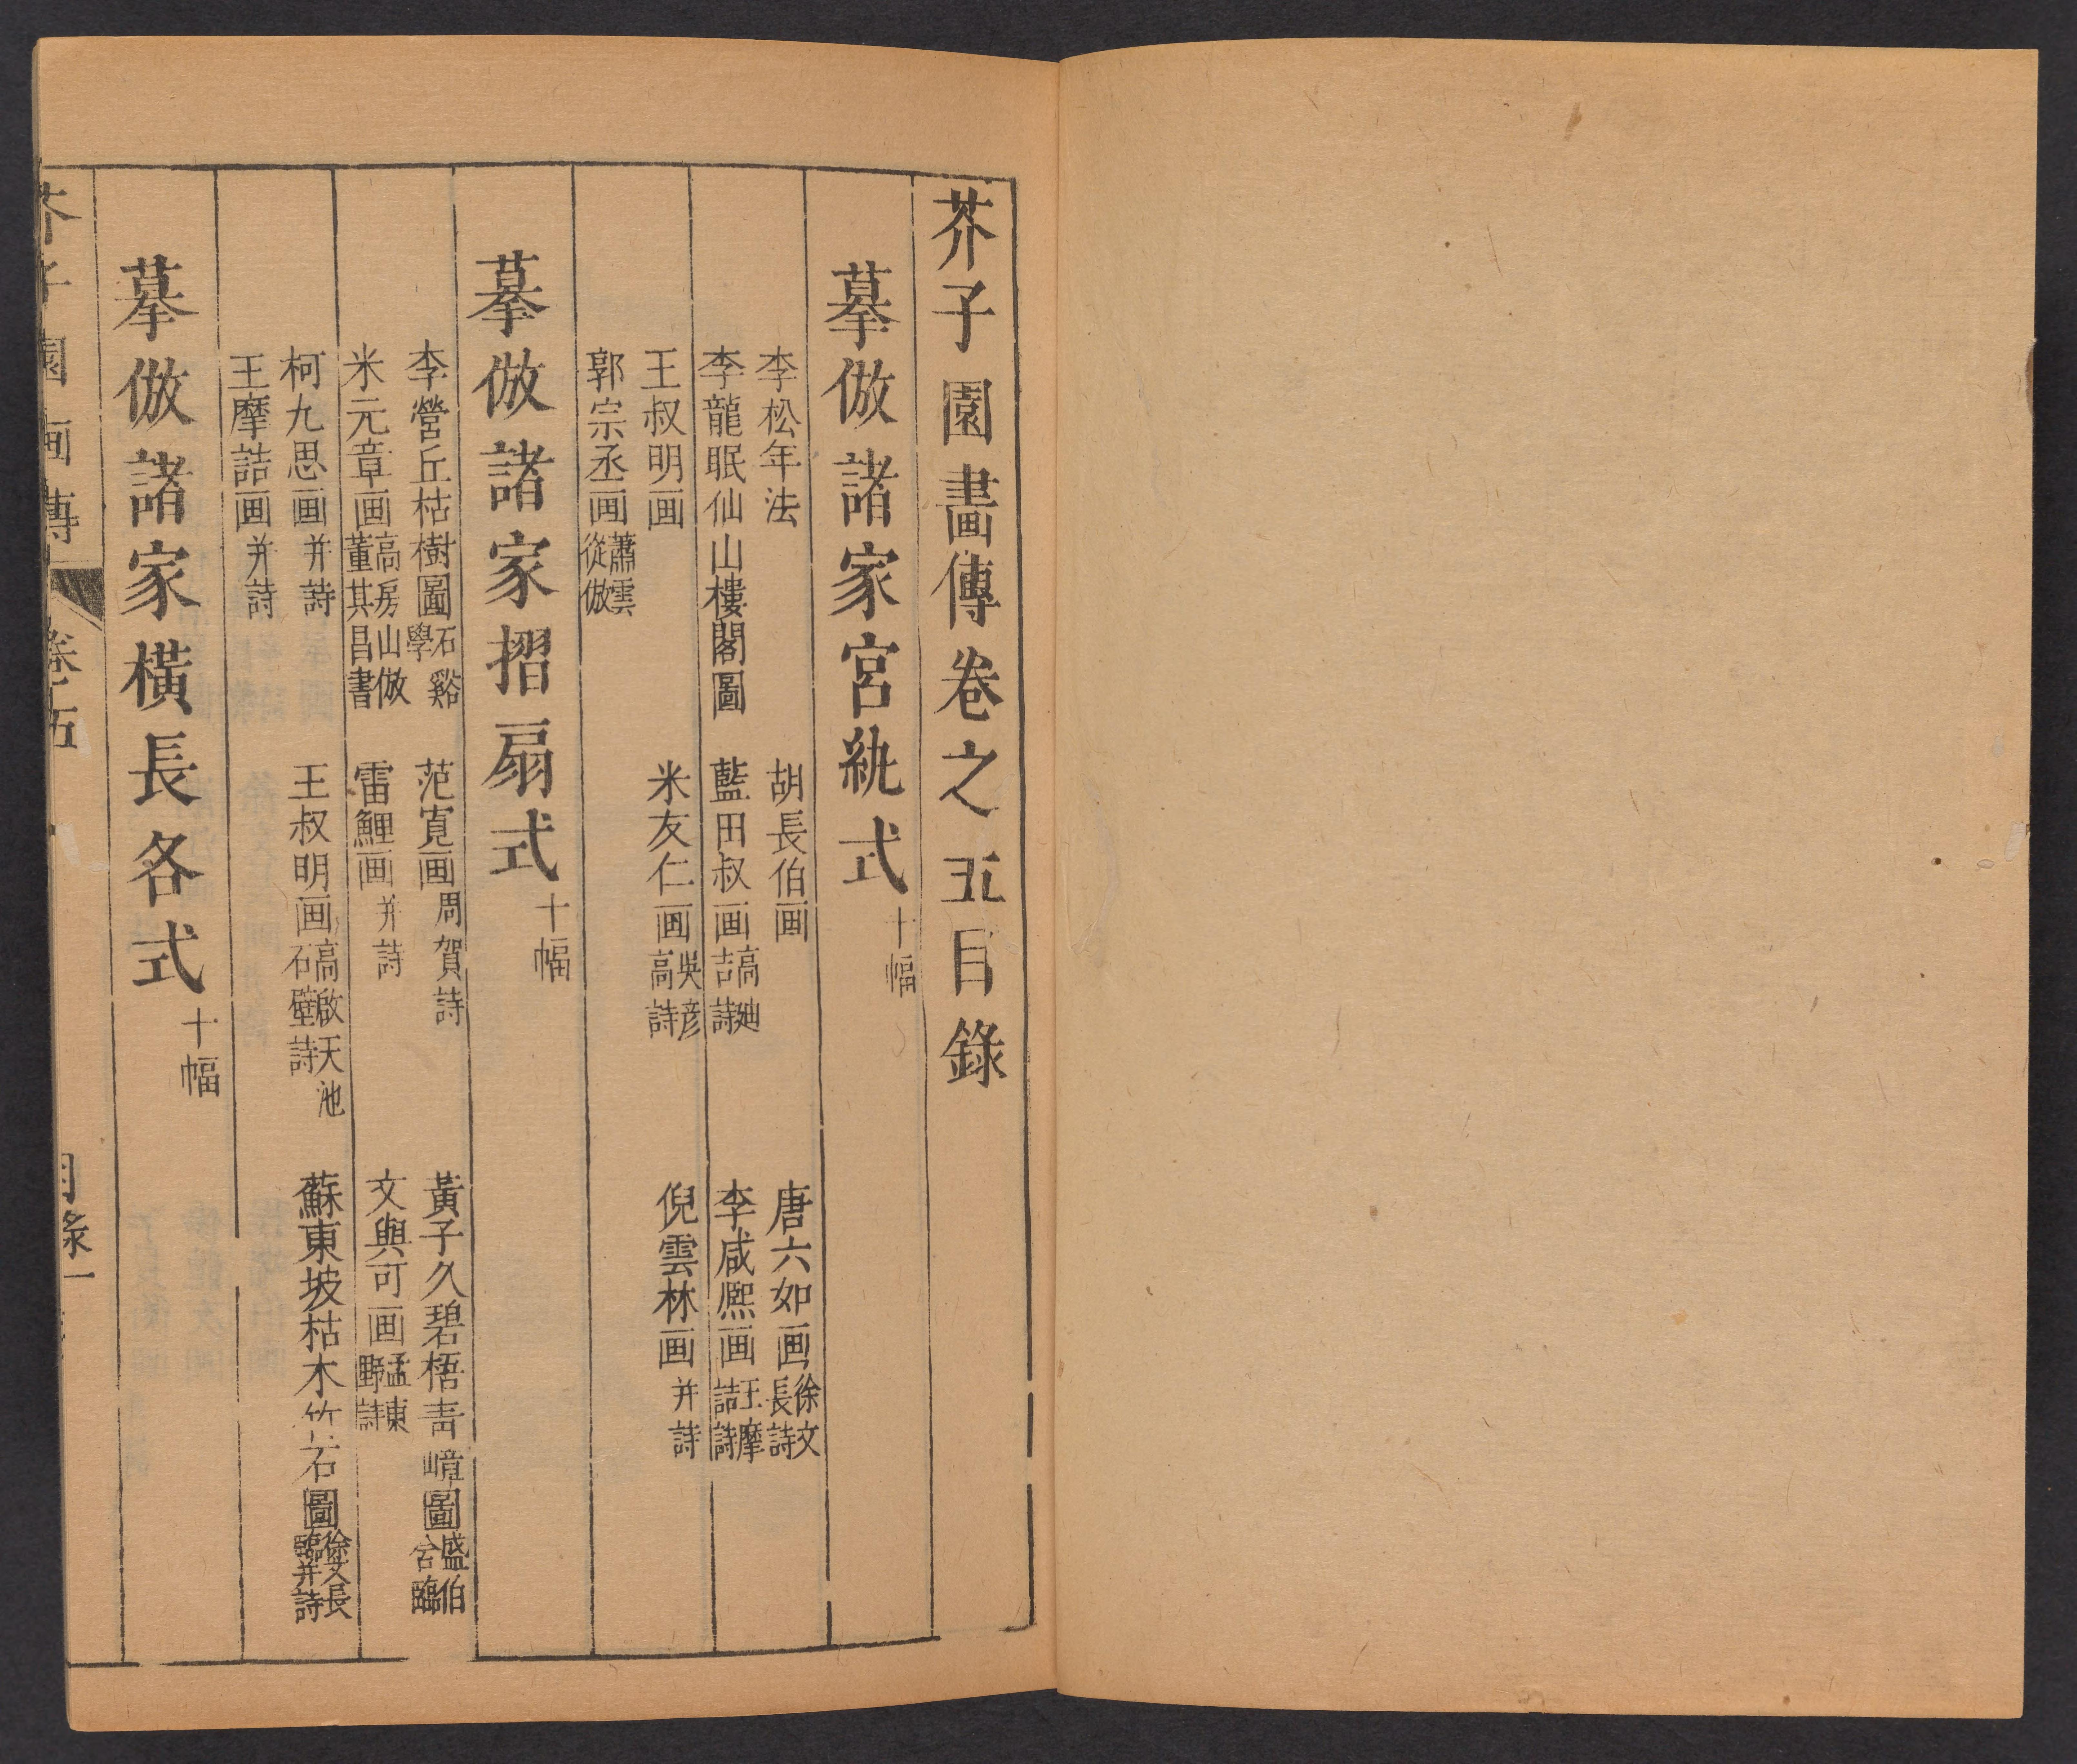 芥子園畫傳卷之五目錄
摹倣諸家宮紈式十幅
李松年法 胡長伯画 唐六如画徐文長詩
李龍眠仙山樓閣圖 藍田叔画高廸吉詩 李咸熙画王摩詰詩
王叔明画 米友仁画吳彦高詩 倪雲林画并詩
郭宗丞画蕭雲從倣
摹倣諸家摺扇式十幅
李營丘枯樹圖石谿學 范寬画周賀詩 黃子久碧梧靑嶂圖盛伯含臨
米元章画高房山倣董其昌書 雷鯉画并詩 文與可画孟東野詩
柯九思画并詩 王叔明画高啟天池石壁詩 蘇東坡枯木竹石圖徐文長臨并詩
王摩詰画并詩
摹倣諸家橫長各式十幅
芥子園画傳 卷五 目錄一